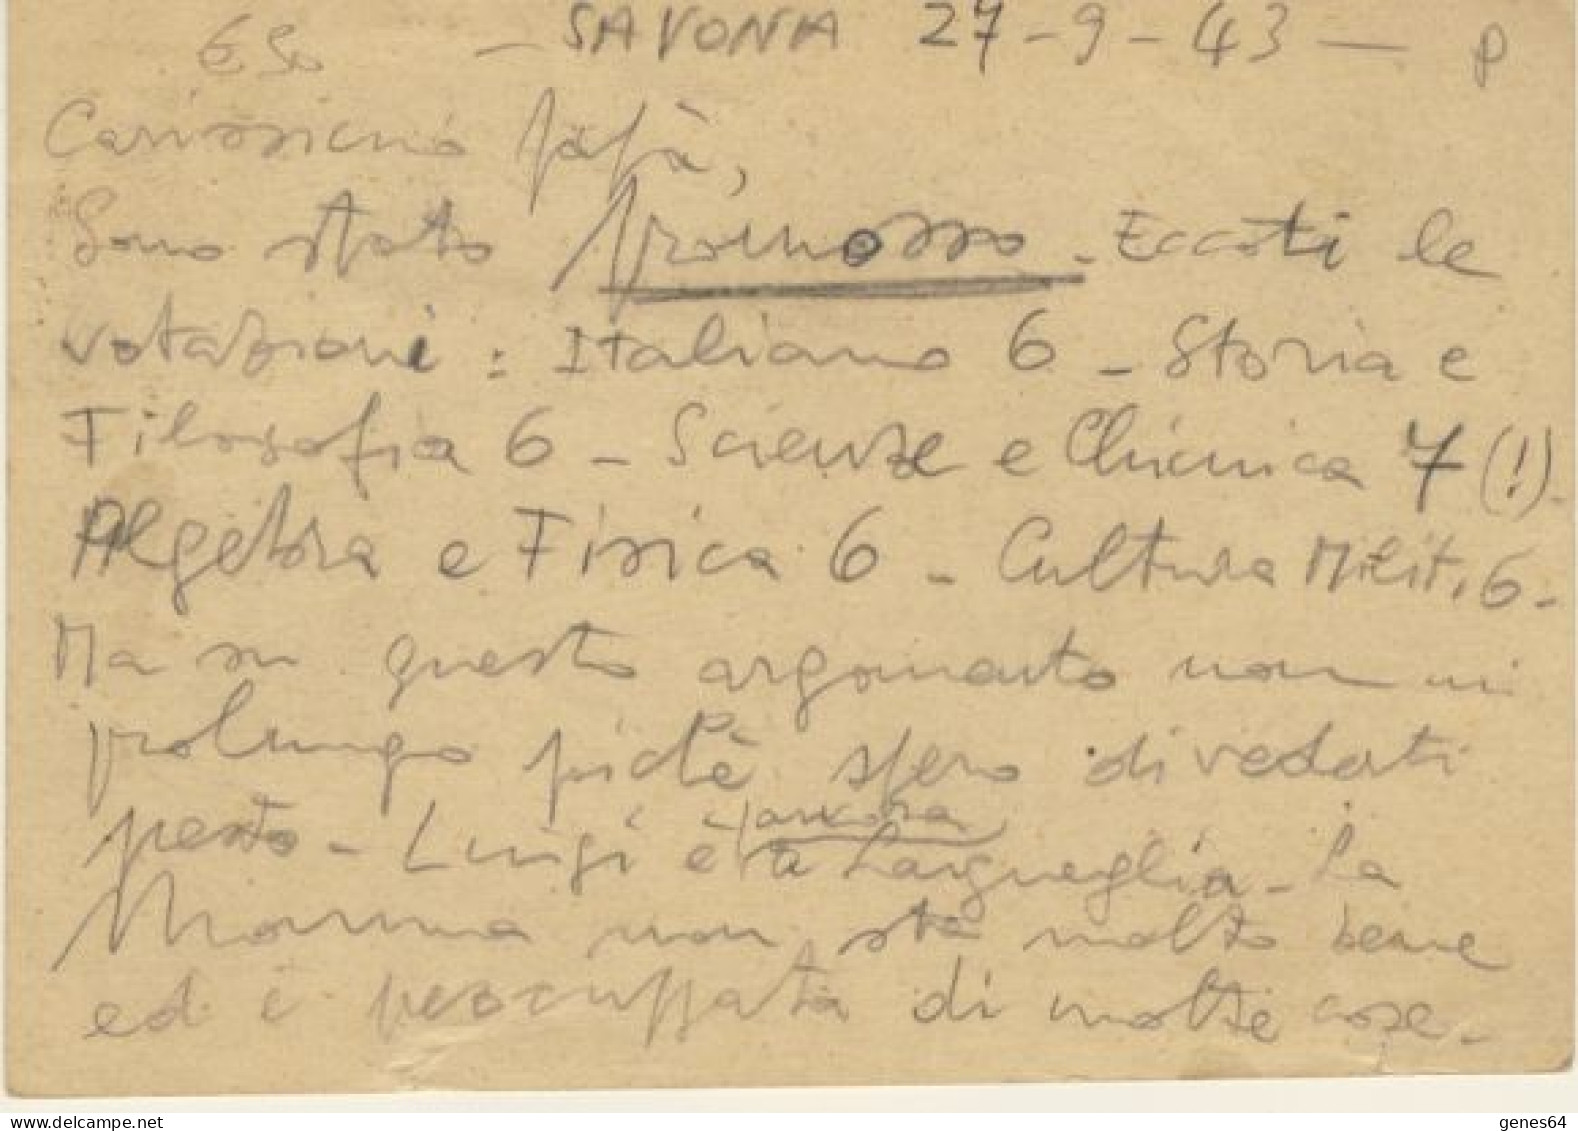 € 50 — SAVONA 27-9-43 — P
Carissimo papà,
Sono stato promosso. Eccoti le
votazioni: Italiano 6 - Storia e
Filosofia 6 - Scienze e Chimica 7 (!) -
Algebra e Fisica 6 - Cultura Milit. 6 -
Ma su questo argomento non mi
prolungo pichè spero di vederti
presto - Luigi è ancora a Laigueglia - La
Mamma non sta molto bene
ed è preoccupata di molte cose -
www.delcampe.net
genes64